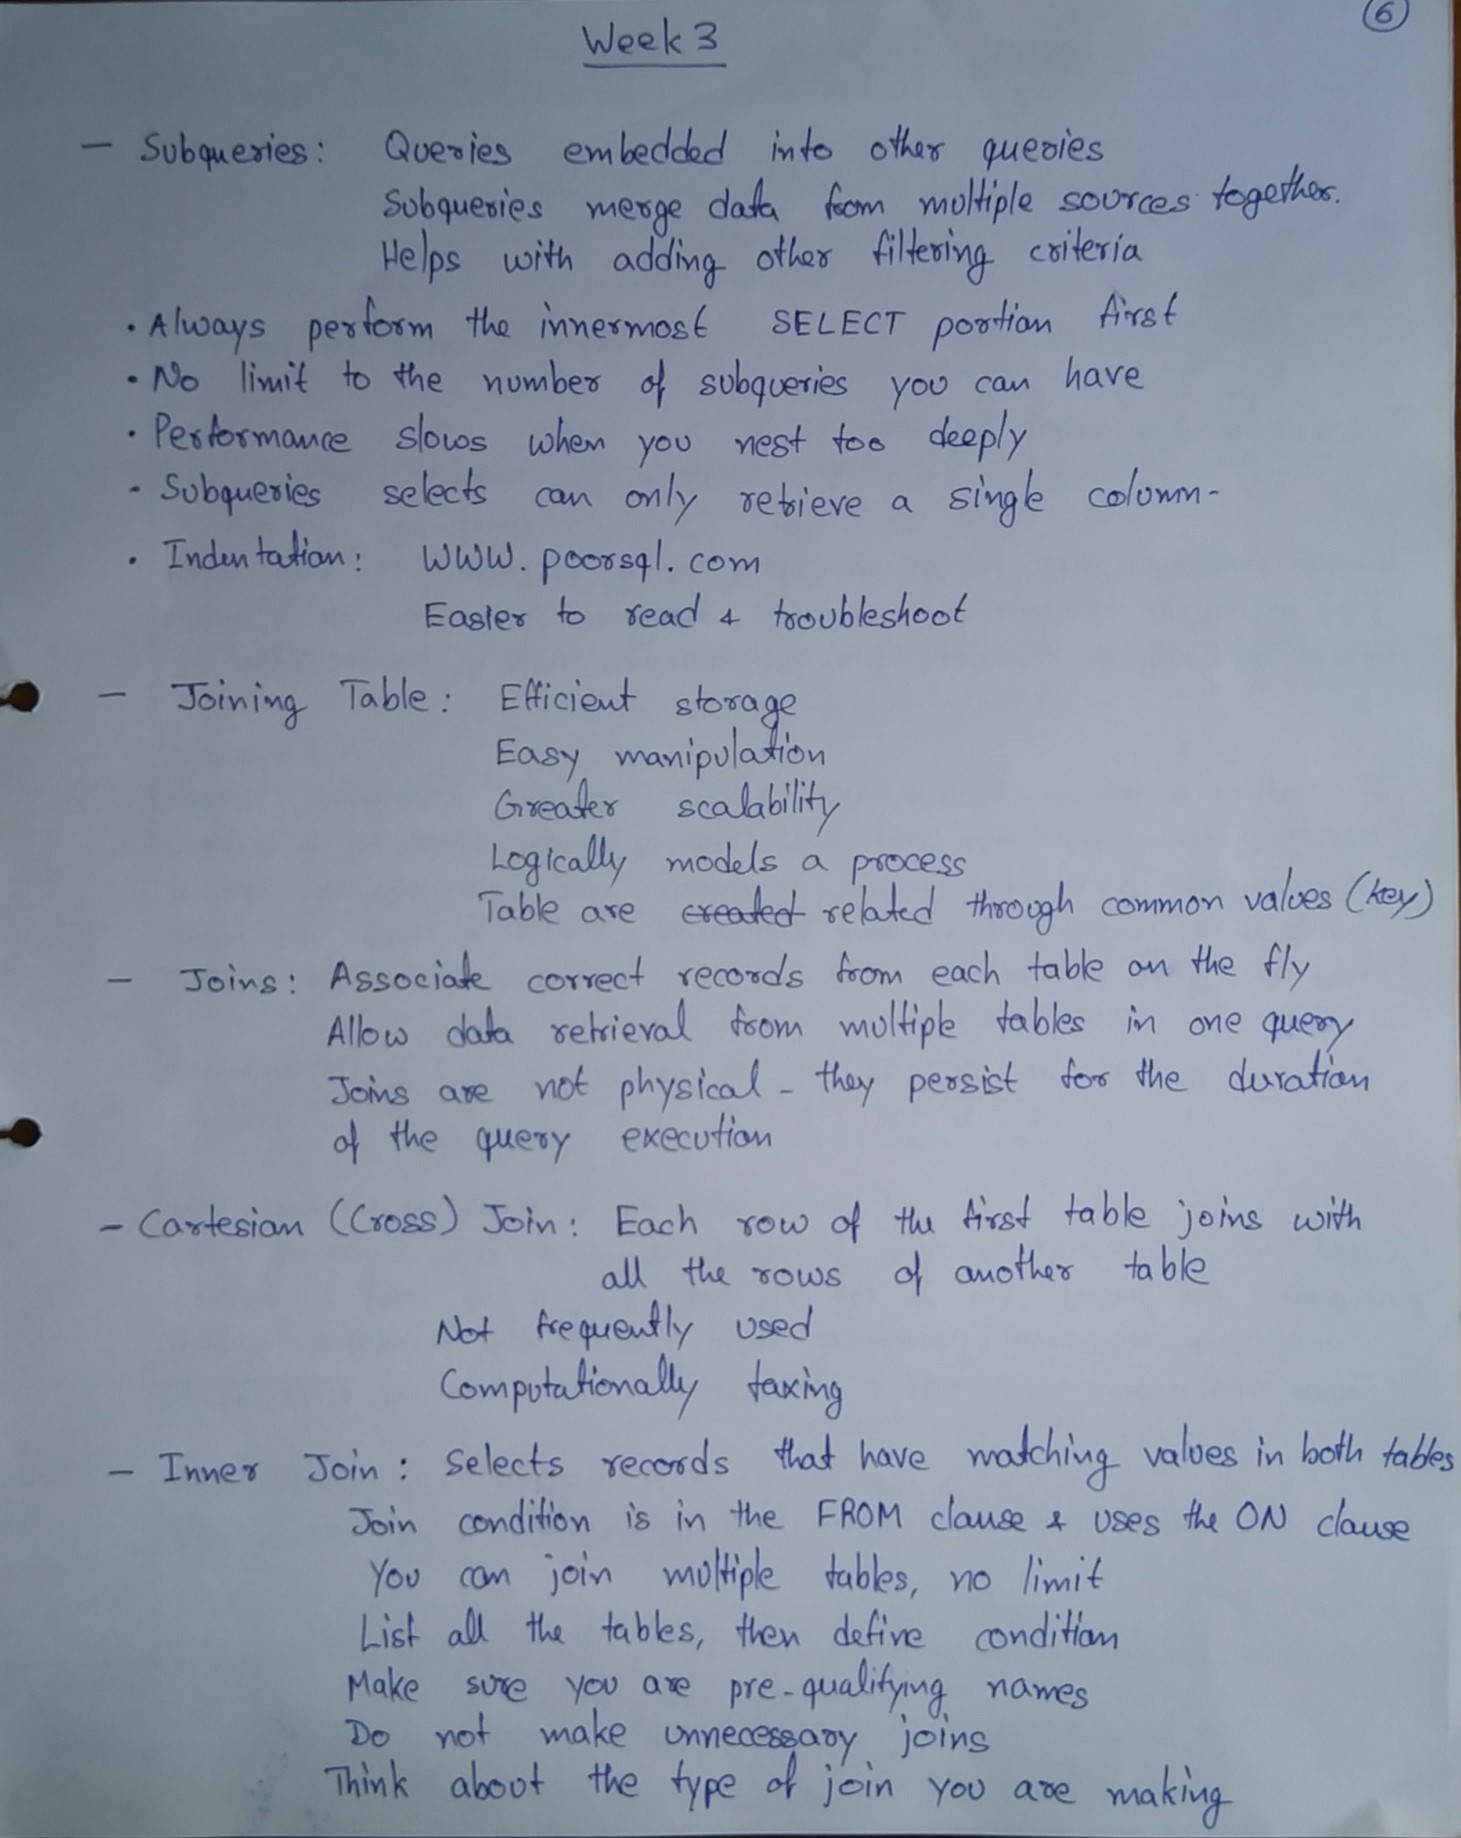 6
Week 3
- Subqueries: Queries embedded into other queries
Subqueries merge data from multiple sources together.
Helps with adding other filtering criteria
• Always perform the innermost SELECT portion first
• No limit to the number of subqueries you can have
• Performance slows when you nest too deeply
• Subqueries selects can only retrieve a single column-
• Indentation: www.poorsql.com
Easier to read & troubleshoot
- Joining Table: Efficient storage
Easy manipulation
Greater scalability
Logically models a process
Table are created related through common values (key)
- Joins: Associate correct records from each table on the fly
Allow data retrieval from multiple tables in one query
Joins are not physical - they persist for the duration
of the query execution
- Cartesian (Cross) Join: Each row of the first table joins with
all the rows of another table
Not frequently used
Computationally taxing
- Inner Join: Selects records that have matching values in both tables
Join condition is in the FROM clause & uses the ON clause
You can join multiple tables, no limit
List all the tables, then define condition
Make sure you are pre-qualifying names
Do not make unnecessary joins
Think about the type of join you are making